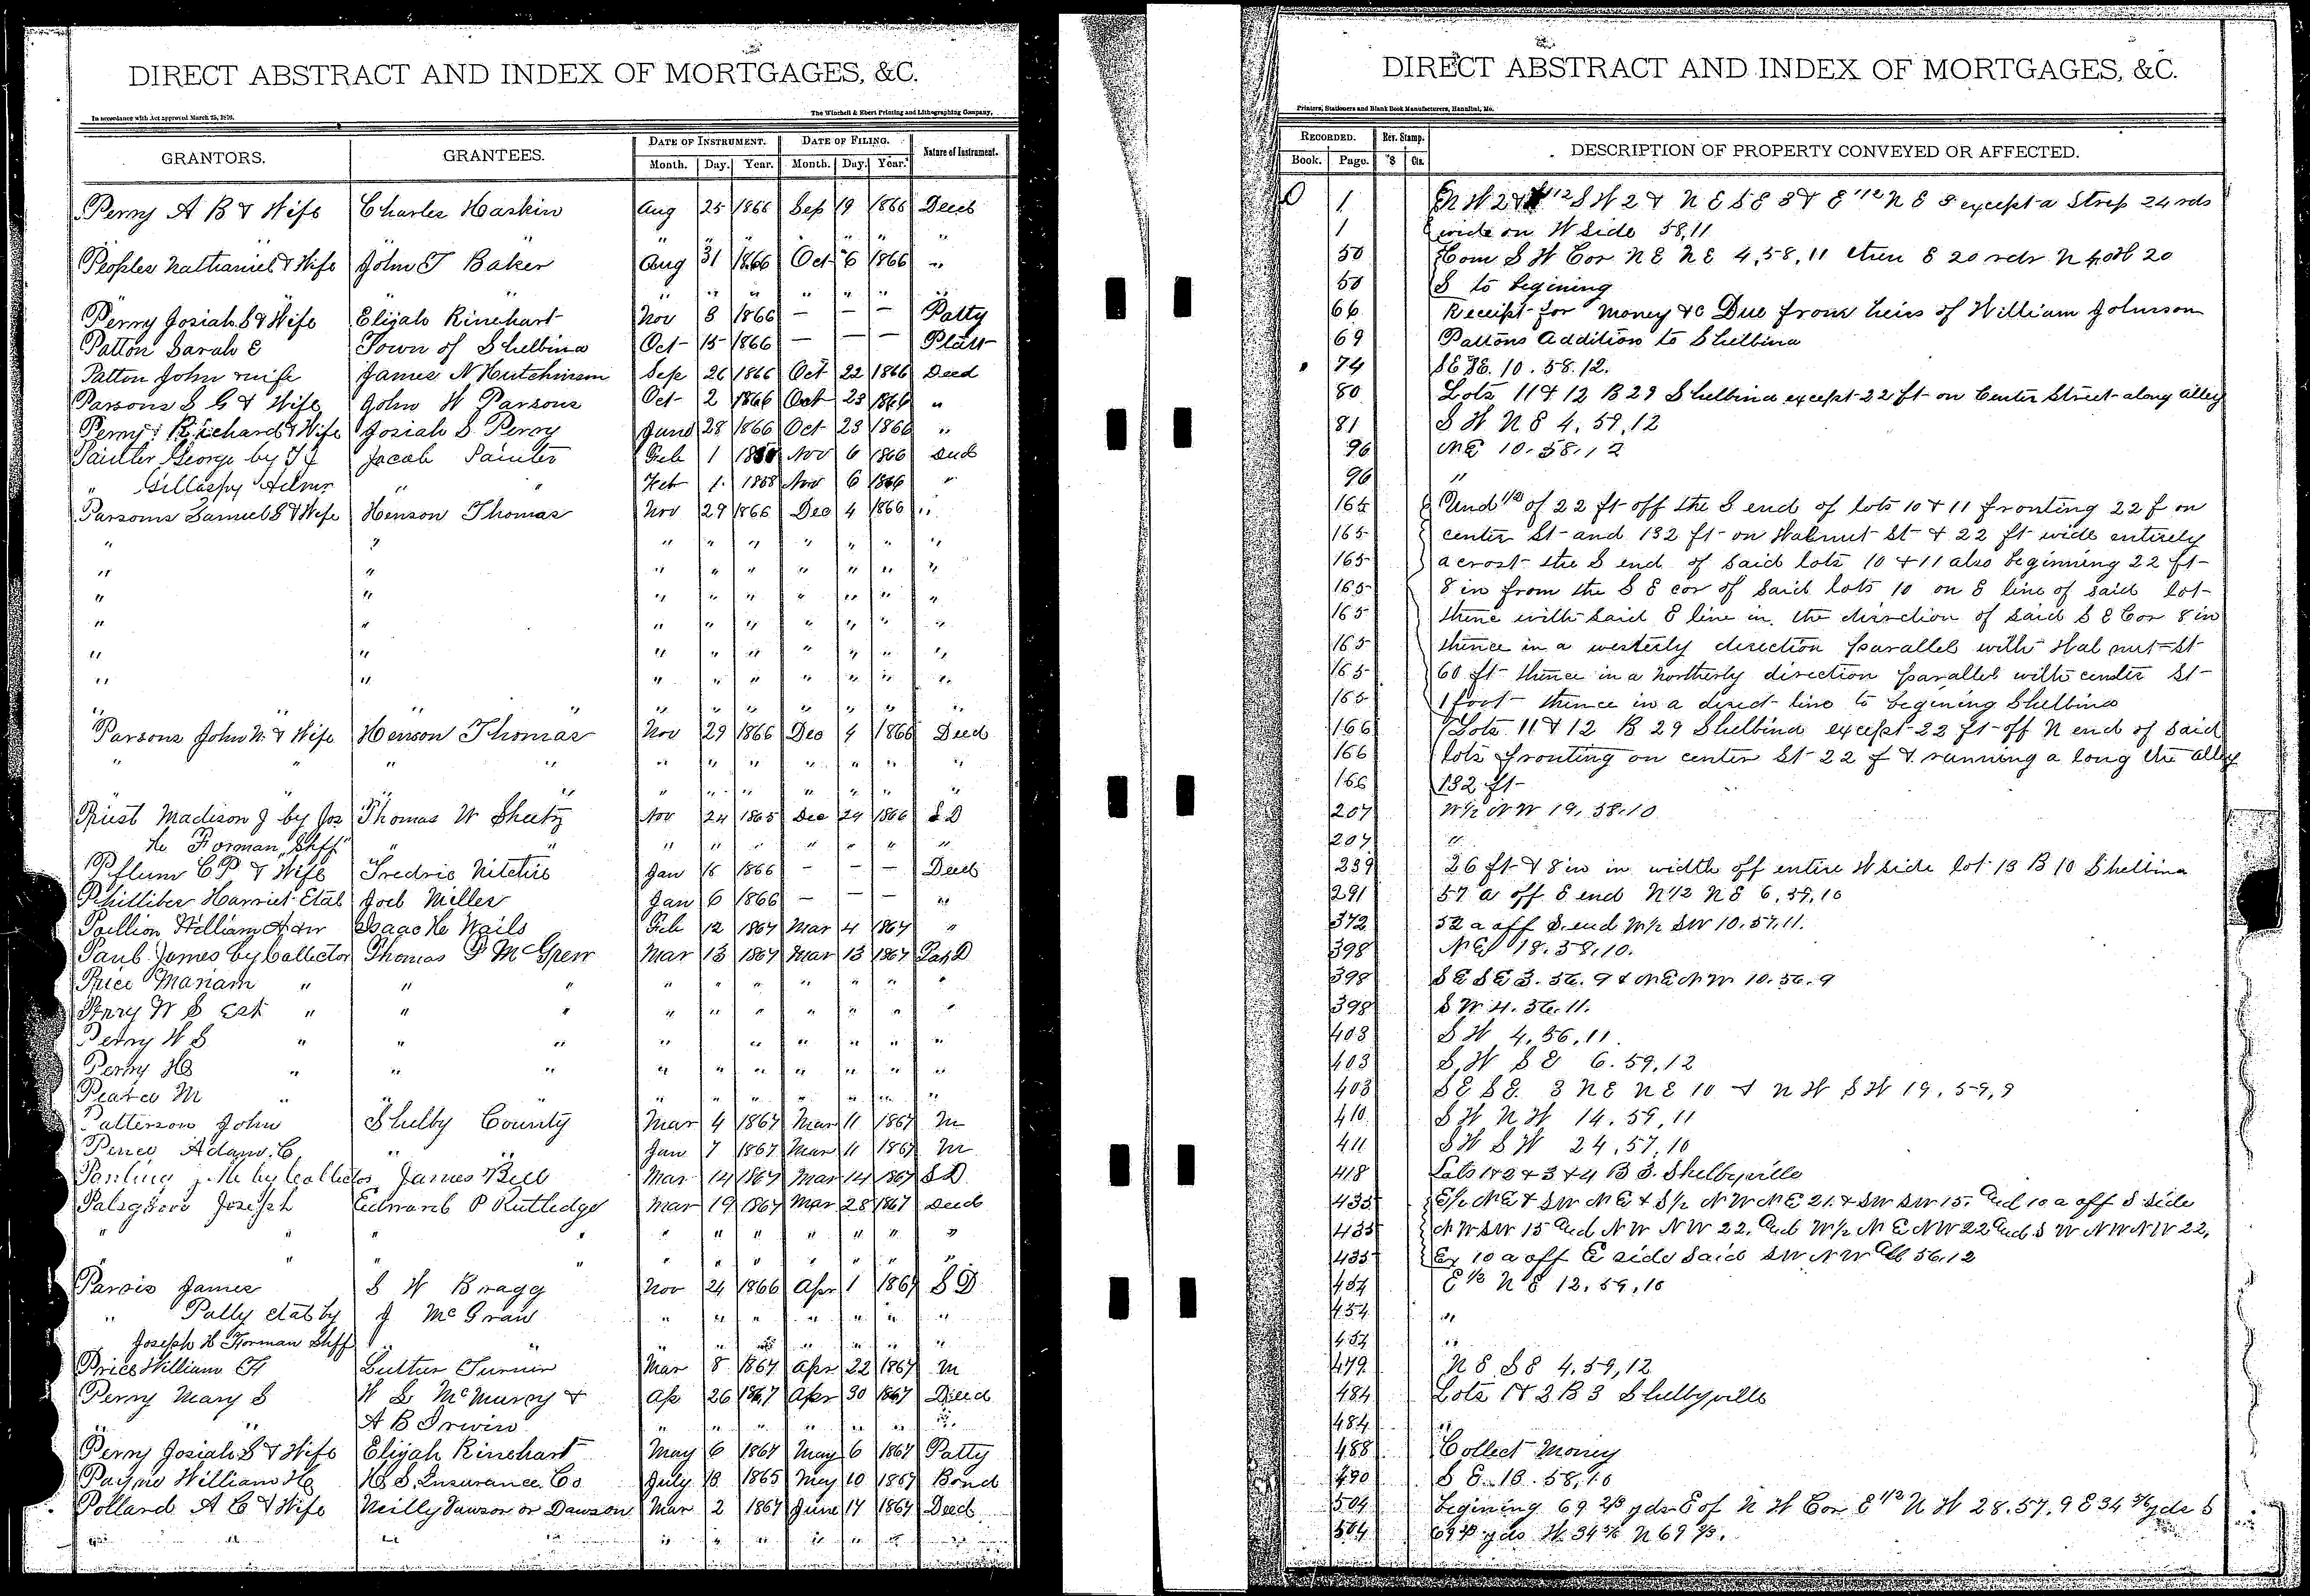 DIRECT ABSTRACT AND INDEX OF MORTGAGES, &C.
In accordance with Act approved March 25, 1876.
The Winchell & Ebert Printing and Lithographing Company,
GRANTORS. GRANTEES. DATE OF INSTRUMENT. DATE OF FILING. Nature of Instrument.
Month. Day. Year. Month. Day. Year.
Perry A B & Wife Charles Haskin Aug 25 1866 Sep 19 1866 Deed
" " " " " " "
Peoples Nathaniel & Wife John T Baker Aug 31 1866 Oct 6 1866 "
" " " " " " " "
Perry Josiah S & Wife Elijah Rinehart Nov 8 1866 — — — Patty
Patton Sarah E Town of Shelbina Oct 15 1866 — — — Platt
Patton John & wife James N Hutchinson Sep 26 1866 Oct 22 1866 Deed
Parsons S G & Wife John W Parsons Oct 2 1866 Oct 23 1866 "
Perry Richard & Wife Josiah S Perry June 28 1866 Oct 23 1866 "
Painter George by T J Jacob Painter Feb 1 1858 Nov 6 1866 Deed
" Gillaspy Admr " " Feb 1 1858 Nov 6 1866 "
Parsons Samuel S & Wife Henson Thomas Nov 29 1866 Dec 4 1866 "
" " " " " " " " "
" " " " " " " " "
" " " " " " " " "
" " " " " " " " "
" " " " " " " " "
" " " " " " " " "
" " " " " " " " " "
Parsons John W. & Wife Henson Thomas Nov 29 1866 Dec 4 1866 Deed
" " " " " " " " " " "
" " " " " " " " "
Priest Madison J by Jos Thomas W Sheetz Nov 24 1865 Dec 24 1866 S D
H Forman Shff " " " " " " " " "
Pflum C P & Wife Fredric Nitchie Jan 16 1866 — — — Deed
Philliber Harriet Etal Joel Miller Jan 6 1866 — — — "
Pollion William H & wr Isaac H Wails Feb 12 1867 Mar 4 1867 "
Paub James by Collector Thomas P McGperr Mar 13 1867 Mar 13 1867 Tax D
Price Mariam " " " " " " " " " "
Perry W S Est " " " " " " " " " "
Perry W S " " " " " " " " "
Perry H " " " " " " " " " "
Pearce M " " " " " " " " " "
Patterson John Shelby County Mar 4 1867 Mar 11 1867 M
Pence Adam C " " Jan 7 1867 Mar 11 1867 M
by Collector James Bell Mar 14 1867 Mar 14 1867 S D
Palsgrove Joseph Edward P Rutledge Mar 19 1867 Mar 28 1867 Deed
" " " " " " " " "
" " " " " " " " "
Parvis James S W Bragg Nov 24 1866 Apr 1 1867 S D
" Pally etal by J McGraw " " " " " " "
Joseph H Forman Shff " " " " " " " " "
Price William H Luther Turner Mar 8 1867 Apr 22 1867 M
Perry Mary S W L McMurry & Ap 26 1867 Apr 30 1867 Deed
" " A B Irwin " " " " " " "
Perry Josiah S & Wife Elijah Rinehart May 6 1867 May 6 1867 Patty
Payne William H H S Insurance Co July 18 1865 May 10 1867 Bond
Pollard A C & Wife Neilly Vawson or Dawson Mar 2 1867 June 17 1867 Deed
" " " " " " " " "
DIRECT ABSTRACT AND INDEX OF MORTGAGES, &C.
Printers, Stationers and Blank Book Manufacturers, Hannibal, Mo.
RECORDED. Rev. Stamp. DESCRIPTION OF PROPERTY CONVEYED OR AFFECTED.
Book. Page. $ Cts.
O 1 N W 2 & 1/2 S W 2 & N E S E 3 & E 1/2 N E 3 except a Strip 24 rds
1 wide on W side 58,11
50 Com S W Cor N E N E 4,58,11 then E 20 rds N 40 W 20
50 S to begining
66 Receipt for money &c Due from heirs of William Johnson
69 Pattons Addition to Shelbina
74 SE SE. 10.58.12.
80 Lots 11 & 12 B 29 Shelbina except 22 ft on Center Street along alley
81 S W N E 4,59,12
96 NE 10.58.12
96 "
165 Und 1/2 of 22 ft off the S end of lots 10 & 11 fronting 22 f on
165 center St and 132 ft on Walnut St & 22 ft wide entirely
165 acrost the S end of said lots 10 & 11 also beginning 22 ft
165 8 in from the S E cor of said lots 10 on E line of said lot
165 thene with said E line in the direction of said S E Cor 8 in
165 thence in a westerly direction parallel with Walnut St
165 60 ft thence in a northerly direction parallel with center St
165 1 foot thence in a direct line to begining Shelbina
166 Lots 11 & 12 B 29 Shelbina except 22 ft off N end of said
166 lots fronting on center St 22 f & running a long the alley
166 132 ft
207 W 1/2 N W 19.58.10
207 "
239 26 ft & 8 in in width off entire W side lot 13 B 10 Shelbina
291 57 a off E end N 1/2 N E 6,59,10
372 52 a off S. end W 1/2 SW 10.57.11.
398 NE 18.58.10.
398 SE SE 3.56.9 & NE NW 10.56.9
398 S W 4.56.11.
403 S W 4,56,11.
403 S W S E 6.59,12
403 SE SE. 3 NE NE 10 & N W S W 19.59,9
410 S W N W 14.59,11
411 S W S W 24,57,10
418 Lots 1 & 2 & 3 & 4 B 3. Shelbyville
435 E 1/2 NE & SW NE & S 1/2 NW NE 21. & SW SW 15. And 10 a off S side
435 NW SW 15 And NW NW 22. And W 1/2 NE NW 22 And S W NW NW 22,
435 Ex 10 a off E side Said SW NW All 56.12
457 E 1/2 N E 12,59,10
457 "
457 "
479 N E S E 4.59,12
484 Lots 1 & 2 B 3 Shelbyville
484 "
488 Collect Money
490 S E. 18.58,10
504 Begining 69 2/3 yds E of N W Cor E 1/2 N W 28.57.9 E 34 yds S
504 69 2/3 yds W. 34 N 69 2/3.